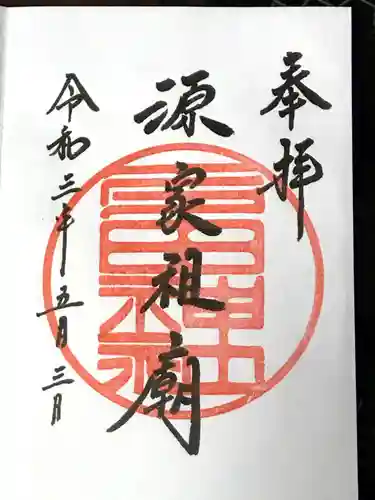 奉拝
源家祖廟
令和三年五月三日